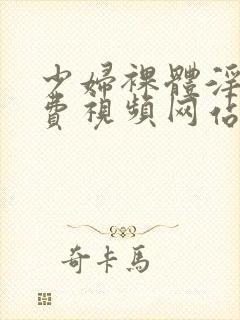 少婦裸體淫
費視頻网佔
奇卡馬